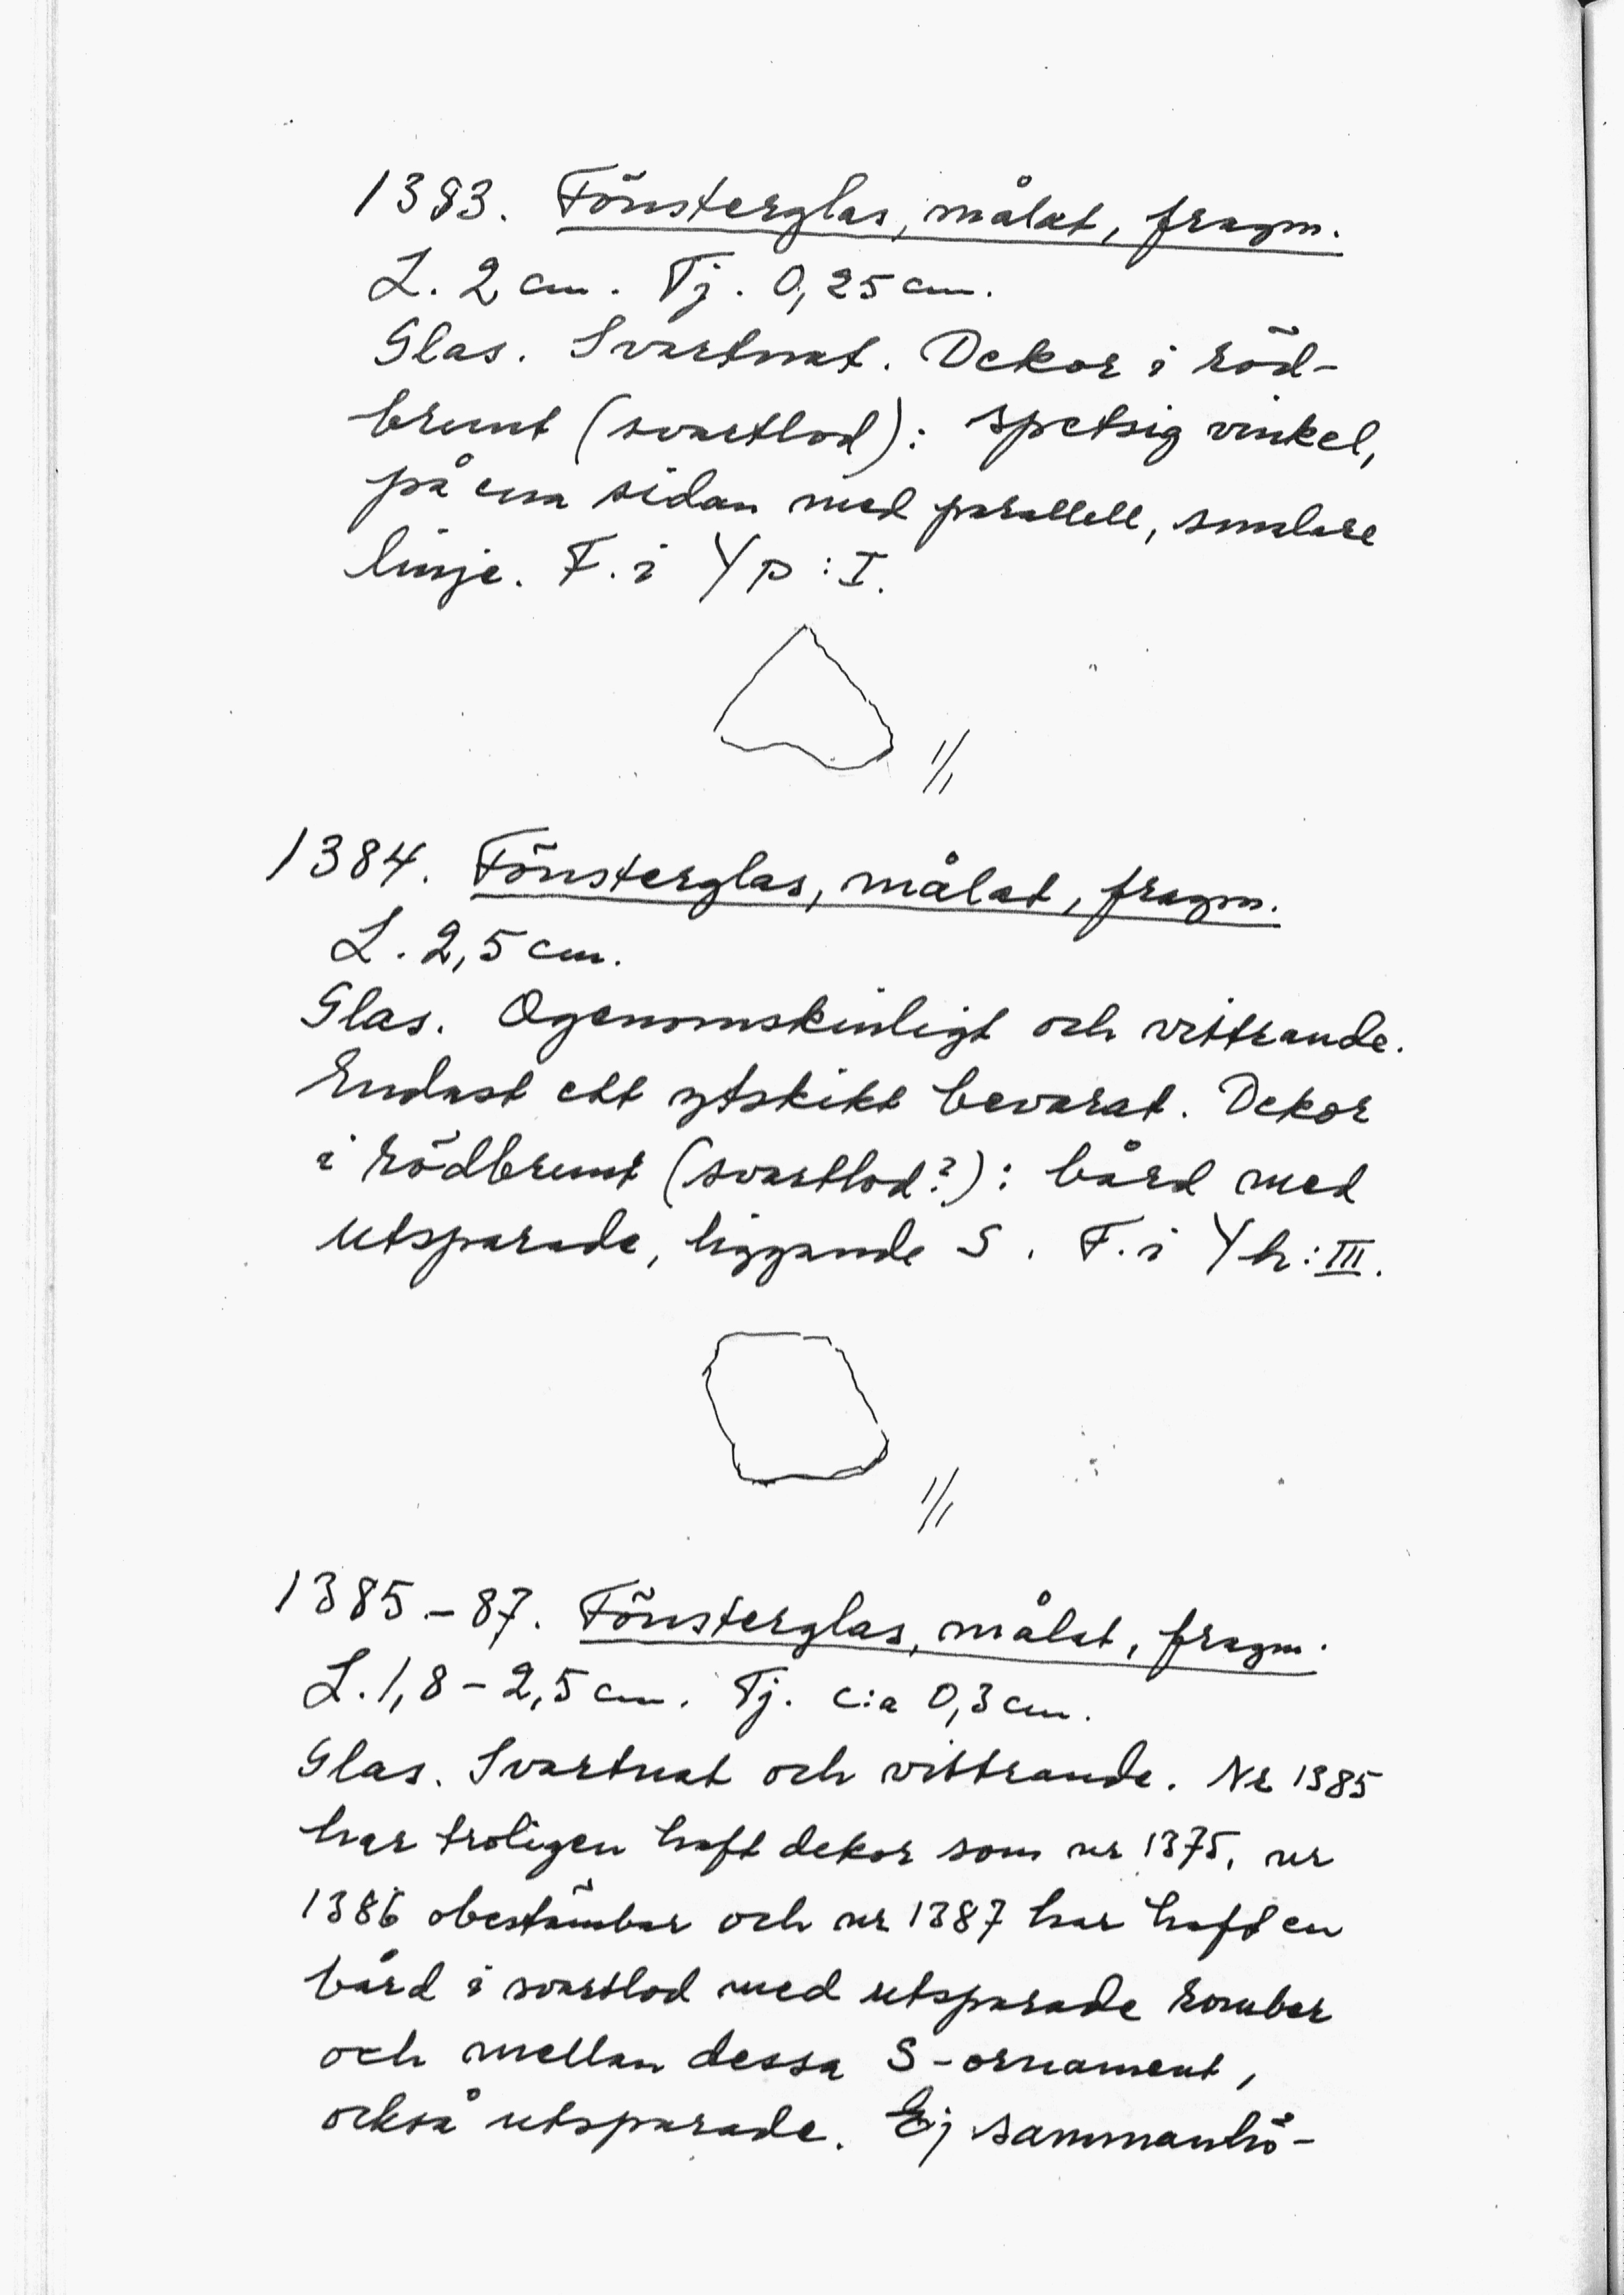 1383. Fönsterglas, målat, fragm.
L. 2 cm. Tj. 0,25 cm.
Glas. Svartnat. Dekor i röd-
brunt (svartlod): spetsig vinkel,
på ena sidan med parallell, smalare
linje. F. i Yp:I.
1/1
1384. Fönsterglas, målat, fragm.
L. 2,5 cm.
Glas. Ogenomskinligt och vittrande.
Endast ett ytskikt bevarat. Dekor
i rödbrunt (svartlod?): bård med
utsparade, liggande S. F. i Yh:III.
1/1
1385-87. Fönsterglas, målat, fragm.
L. 1,8-2,5 cm. Tj. c:a 0,3 cm.
Glas. Svartnat och vittrande. Nr 1385
har troligen haft dekor som nr 1375, nr
1386 obestämbar och nr 1387 har haft en
bård i svartlod med utsparade romber
och mellan dessa S-ornament,
också utsparade. Ej sammanhö-